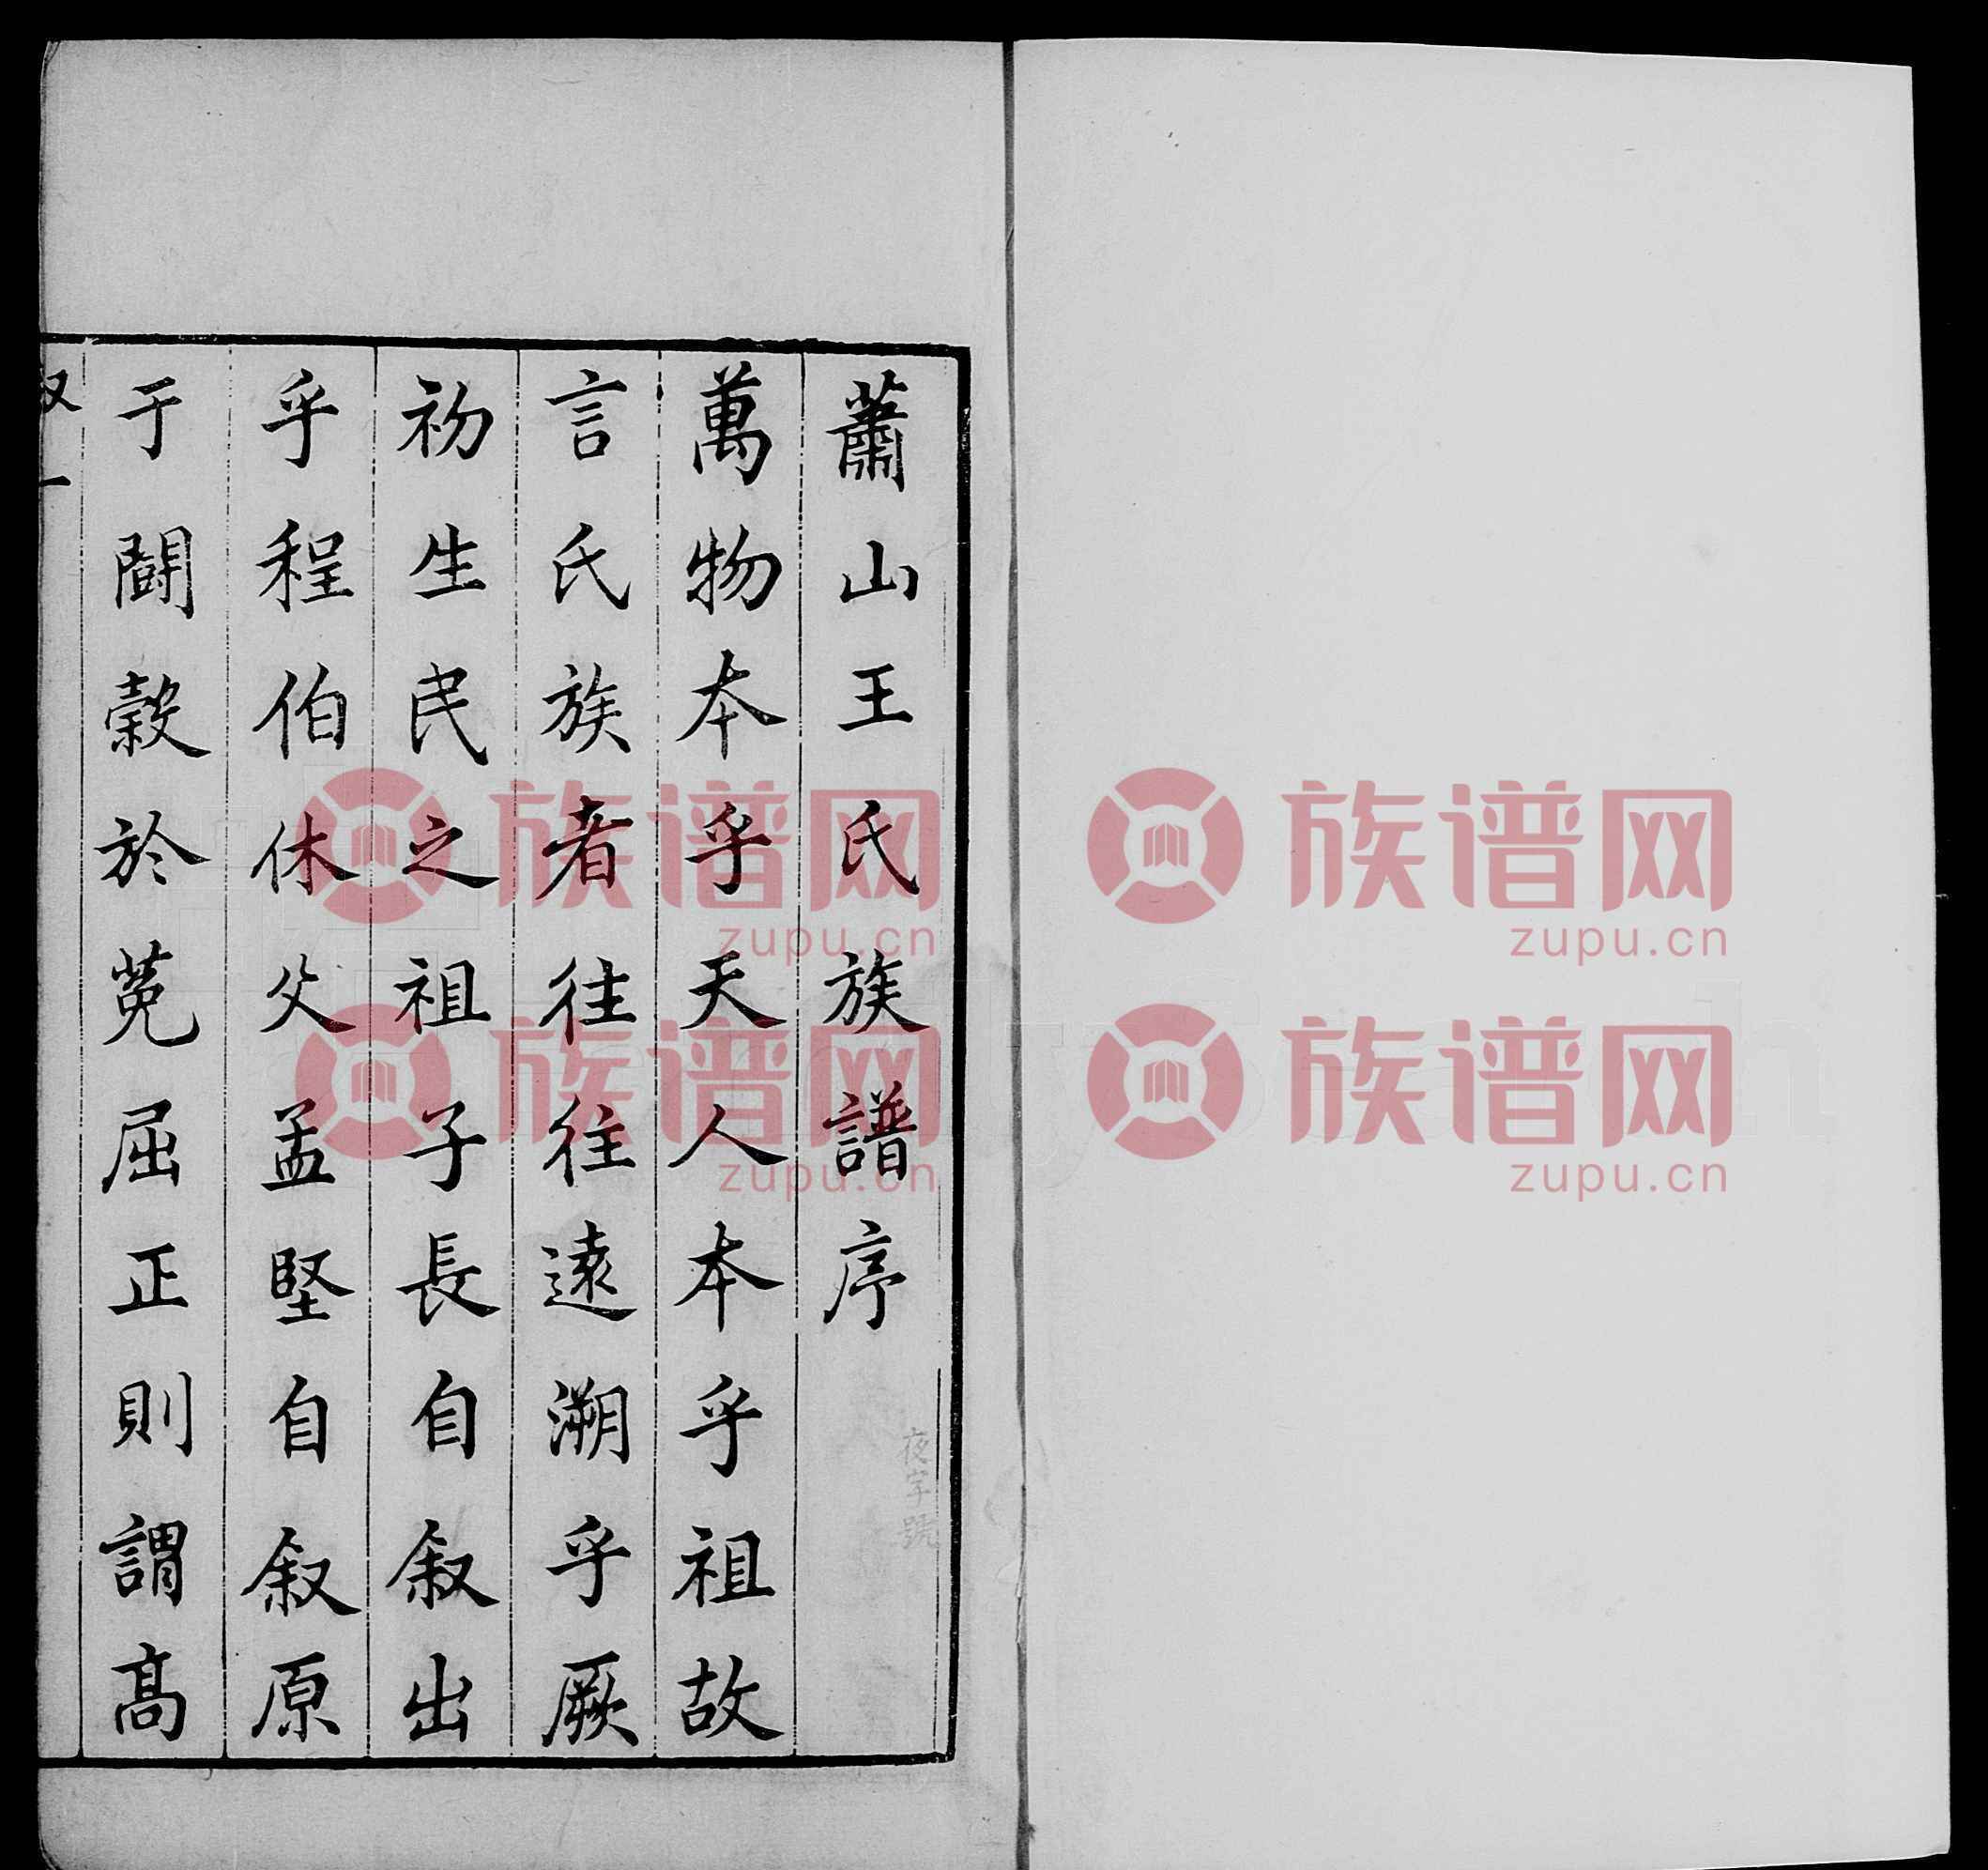 蕭山王氏族譜序
萬物本乎天人本乎祖故
言氏族者往往遠溯乎厥
初生民之祖子長自叙出
乎程伯休父孟堅自叙原
于鬬穀於菟屈正則謂高
夜字號
族谱网
zupu.cn
族谱网
zupu.cn
族谱网
zupu.cn
族谱网
zupu.cn